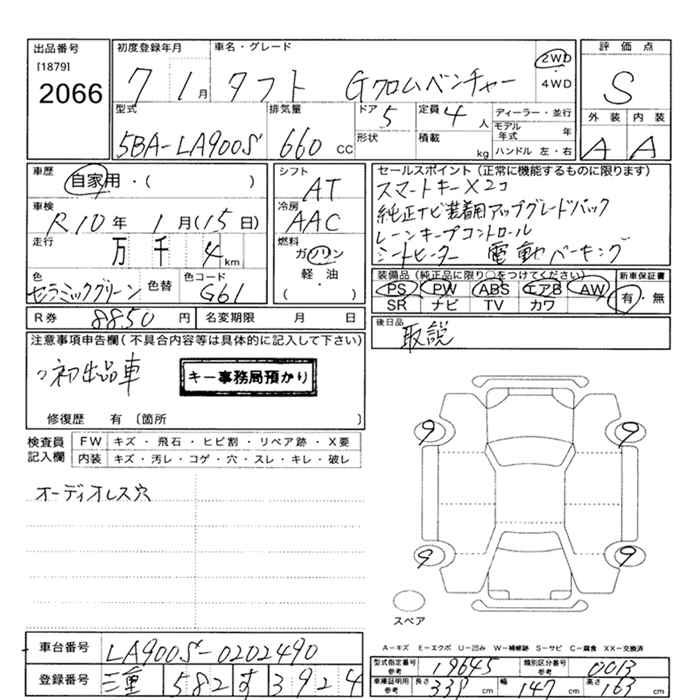 出品番号 初度登録年月 車名・グレード 評価点
[1879] 2066
7 1月 タフト Gクロムベンチャー 2WD・4WD S
型式 排気量 ドア 5 定員 4人 ディーラー・並行 外装 内装
5BA-LA900S 660 CC 形状 積載 kg モデル年式 年 ハンドル 左・右 A A
車歴 シフト セールスポイント(正常に機能するものに限ります)
自家用・( ) AT スマートキー×2コ
車検 冷房 純正ナビ装着用アップグレードパック
R10年 1月(15日) AAC レーンキープコントロール
走行 万 千 4 km 燃料 ガソリン 軽・油 ( ) シートヒーター 電動パーキング
色 色替 色コード 装備品(純正品に限り○をつけてください) 新車保証書
セラミックグリーン G61 PS PW ABS エアB AW 有・無
SR ナビ TV カワ
R券 8850円 名変期限 月 日 後日品
取説
注意事項申告欄(不具合内容等は具体的に記入して下さい)
初出品車 キー事務局預かり
修復歴 有〔箇所 〕
検査員記入欄 FW キズ・飛石・ヒビ割・リペア跡・X要
内装 キズ・汚レ・コゲ・穴・スレ・キレ・破レ
オーディオレス穴
9 9
9 9
スペア
A-キズ E-エクボ U-凹み W-補修跡 S-サビ C-腐食 XX-交換済
車台番号 LA900S-0202490
型式指定番号参考 19645 類別区分番号参考 0013
登録番号 三重 582 す 3924
車庫証明用参考 長さ 339cm 幅 147cm 高さ 163cm